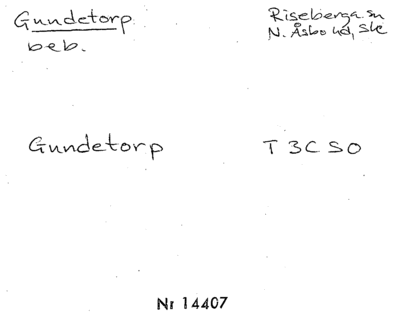 Gundetorp
beb.
Riseberga sn
N. Åsbo hd, Ske
Gundetorp
T 3C SO
Nr 14407